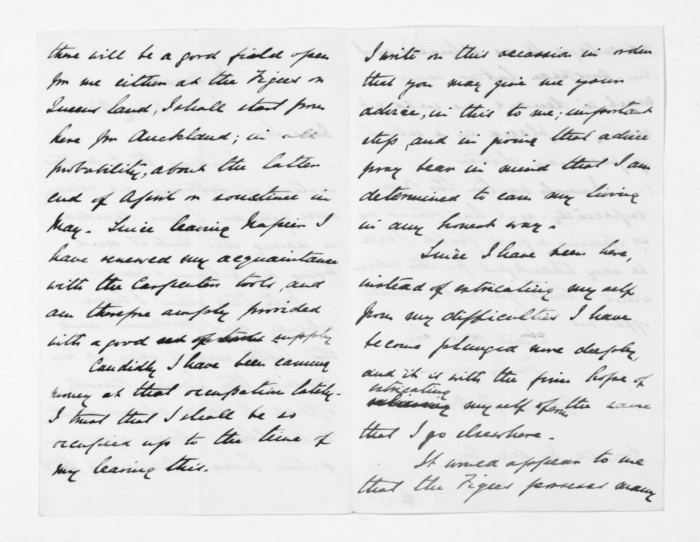 there will be a good field open
for me either at the Figees or
Queens land, I shall start from
here for Auckland; in all
probability, about the latter
end of April or sometime in
May. Since leaving Napier I
have renewed my acquaintance
with the Carpenters tools, and
am therefore amply provided
with a good set of tools supply
Candidly I have been earning
money at that occupation lately.
I trust that I shall be so
occupied up to the time of
my leaving this.
I write on this occassion in order
that you may give me your
advice, in this to me, important
step, and in giving that advice
pray bear in mind that I am
determined to earn my living
in any honest way.
Since I have been here,
instead of extricating my self
from my difficulties I have
become plunged more deeply,
and it is with the firm hope of
extricating
my self from the same
that I go elsewhere.
It would appear to me
that the Figees possess many